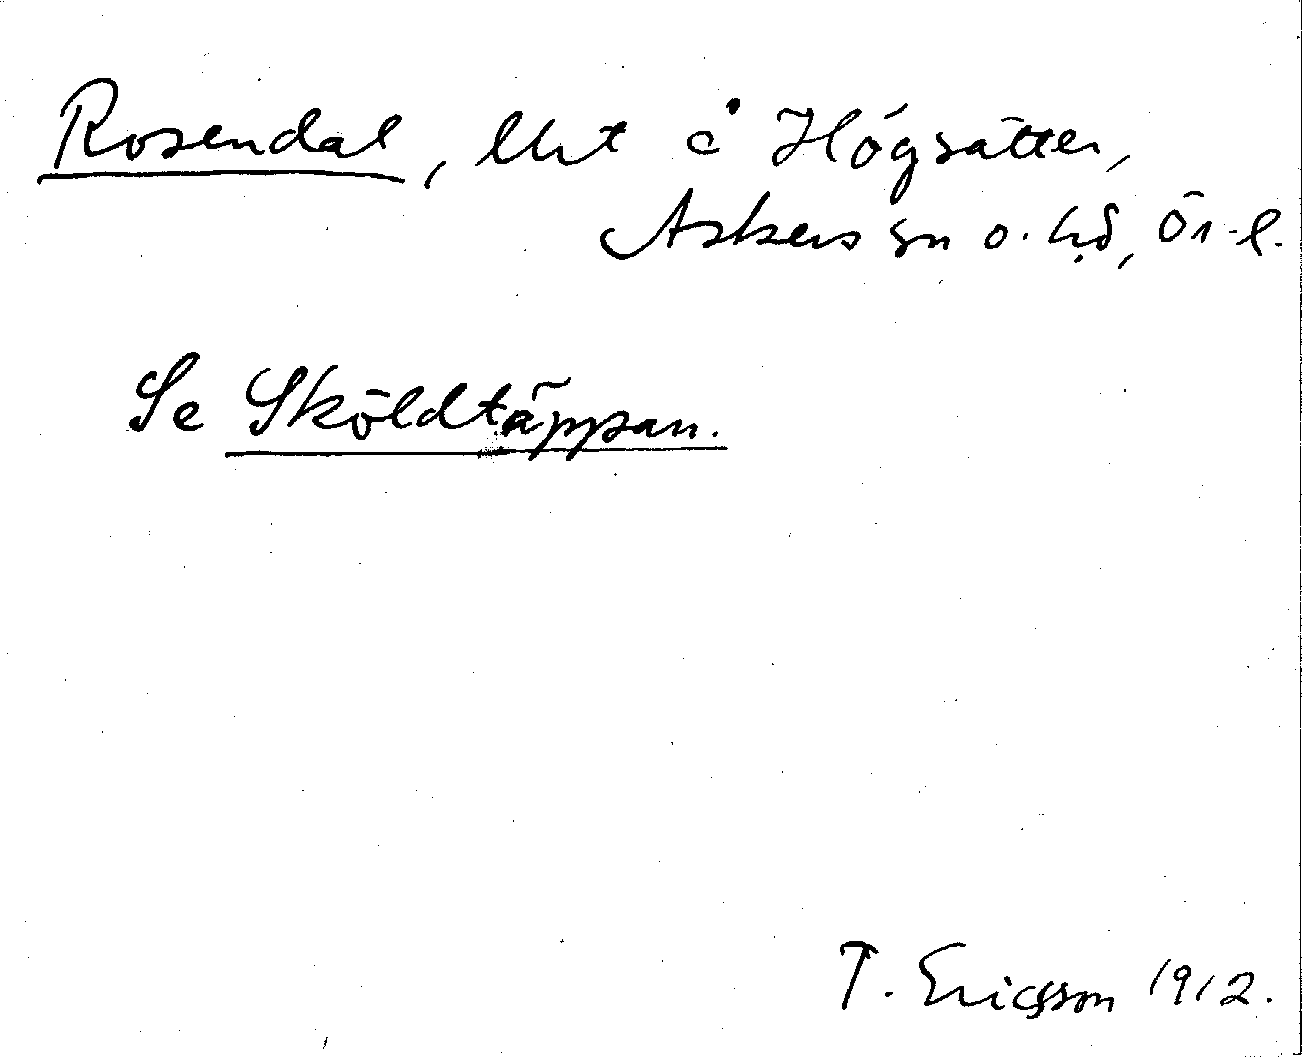 Rosendal, lht å Högsätter,
Askers sn o. hd, Ör. l.
Se Sköldtäppan.
T. Ericsson 1912.